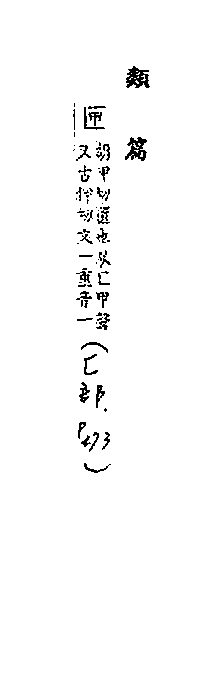 類篇
匣
胡甲切匱也从匚甲聲
又古狎切文一重音一
(匚部.
P473)